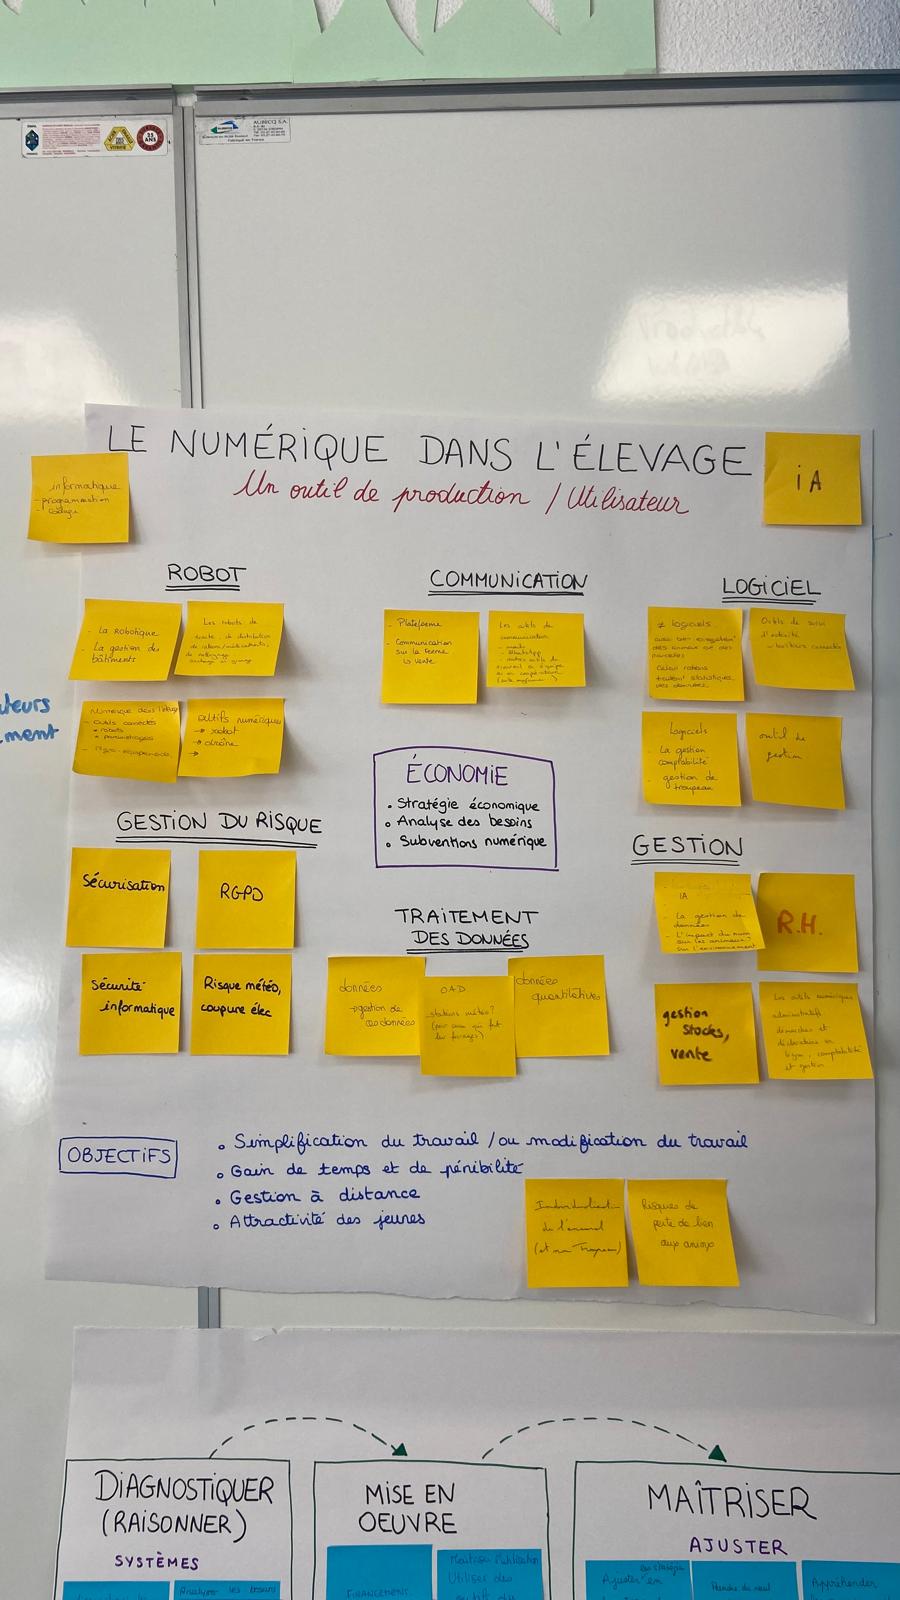 AUBECQ S.A.
Fabriqué en France
25
ANS
LE NUMÉRIQUE DANS L'ÉLEVAGE
Un outil de production / Utilisateur
informatique
- programmation
- codage
iA
ROBOT
- La Robotique
- La gestion des
bâtiments
Les robots de
traite, de distribution
Numérique dans l'élevage
- Outils connectés
• robots
outils numériques
→ robot
→ drône
→
COMMUNICATION
- Plateforme
- Communication
sur la ferme
↳ vente
Les outils de
communication
- mails
- WhatsApp
- autres outils de
travail en équipe
LOGICIEL
≠ logiciels
des animaux et des
parcelles
Calcul rations
traitement statistiques
des données
Outils de suivi
d'activité
→ boîtiers connectés
Logiciels
- La gestion
comptabilité
- gestion de
troupeau
outil de
gestion
ÉCONOMIE
• Stratégie économique
• Analyse des besoins
• Subventions numérique
GESTION DU RISQUE
Sécurisation
RGPD
Sécurité
informatique
Risque météo,
coupure élec
TRAITEMENT
DES DONNÉES
données
→ gestion de
ces données
OAD
stations météo?
(pour ceux qui font
leur fourrages)
données
quantitatives
GESTION
IA
- La gestion de
données
- L'impact du num
sur les animaux?
sur l'environnement
R.H.
gestion
stocks,
vente
Les outils numériques
administratifs
démarches et
déclarations en
ligne, comptabilité
et gestion
OBJECTIFS
• Simplification du travail /ou modification du travail
• Gain de temps et de pénibilité
• Gestion à distance
• Attractivité des jeunes
Individualisation
de l'animal
(et non Troupeau)
Risques de
perte de lien
aux animx
ateurs
ment
DIAGNOSTIQUER
(RAISONNER)
SYSTÈMES
Analyser les besoins
MISE EN
OEUVRE
FINANCEMENT
Maîtrise l'utilisation
Utiliser des
MAÎTRISER
AJUSTER
Ajuster en
Appréhender